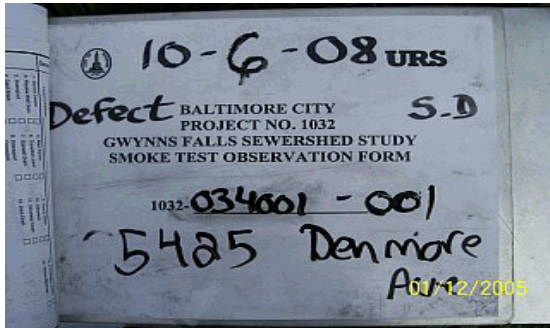 10-6-08 URS
Defect BALTIMORE CITY S.D
PROJECT NO. 1032
GWYNNS FALLS SEWERSHED STUDY
SMOKE TEST OBSERVATION FORM
1032-034001-001
5425 Denmore
Ave
01/12/2005